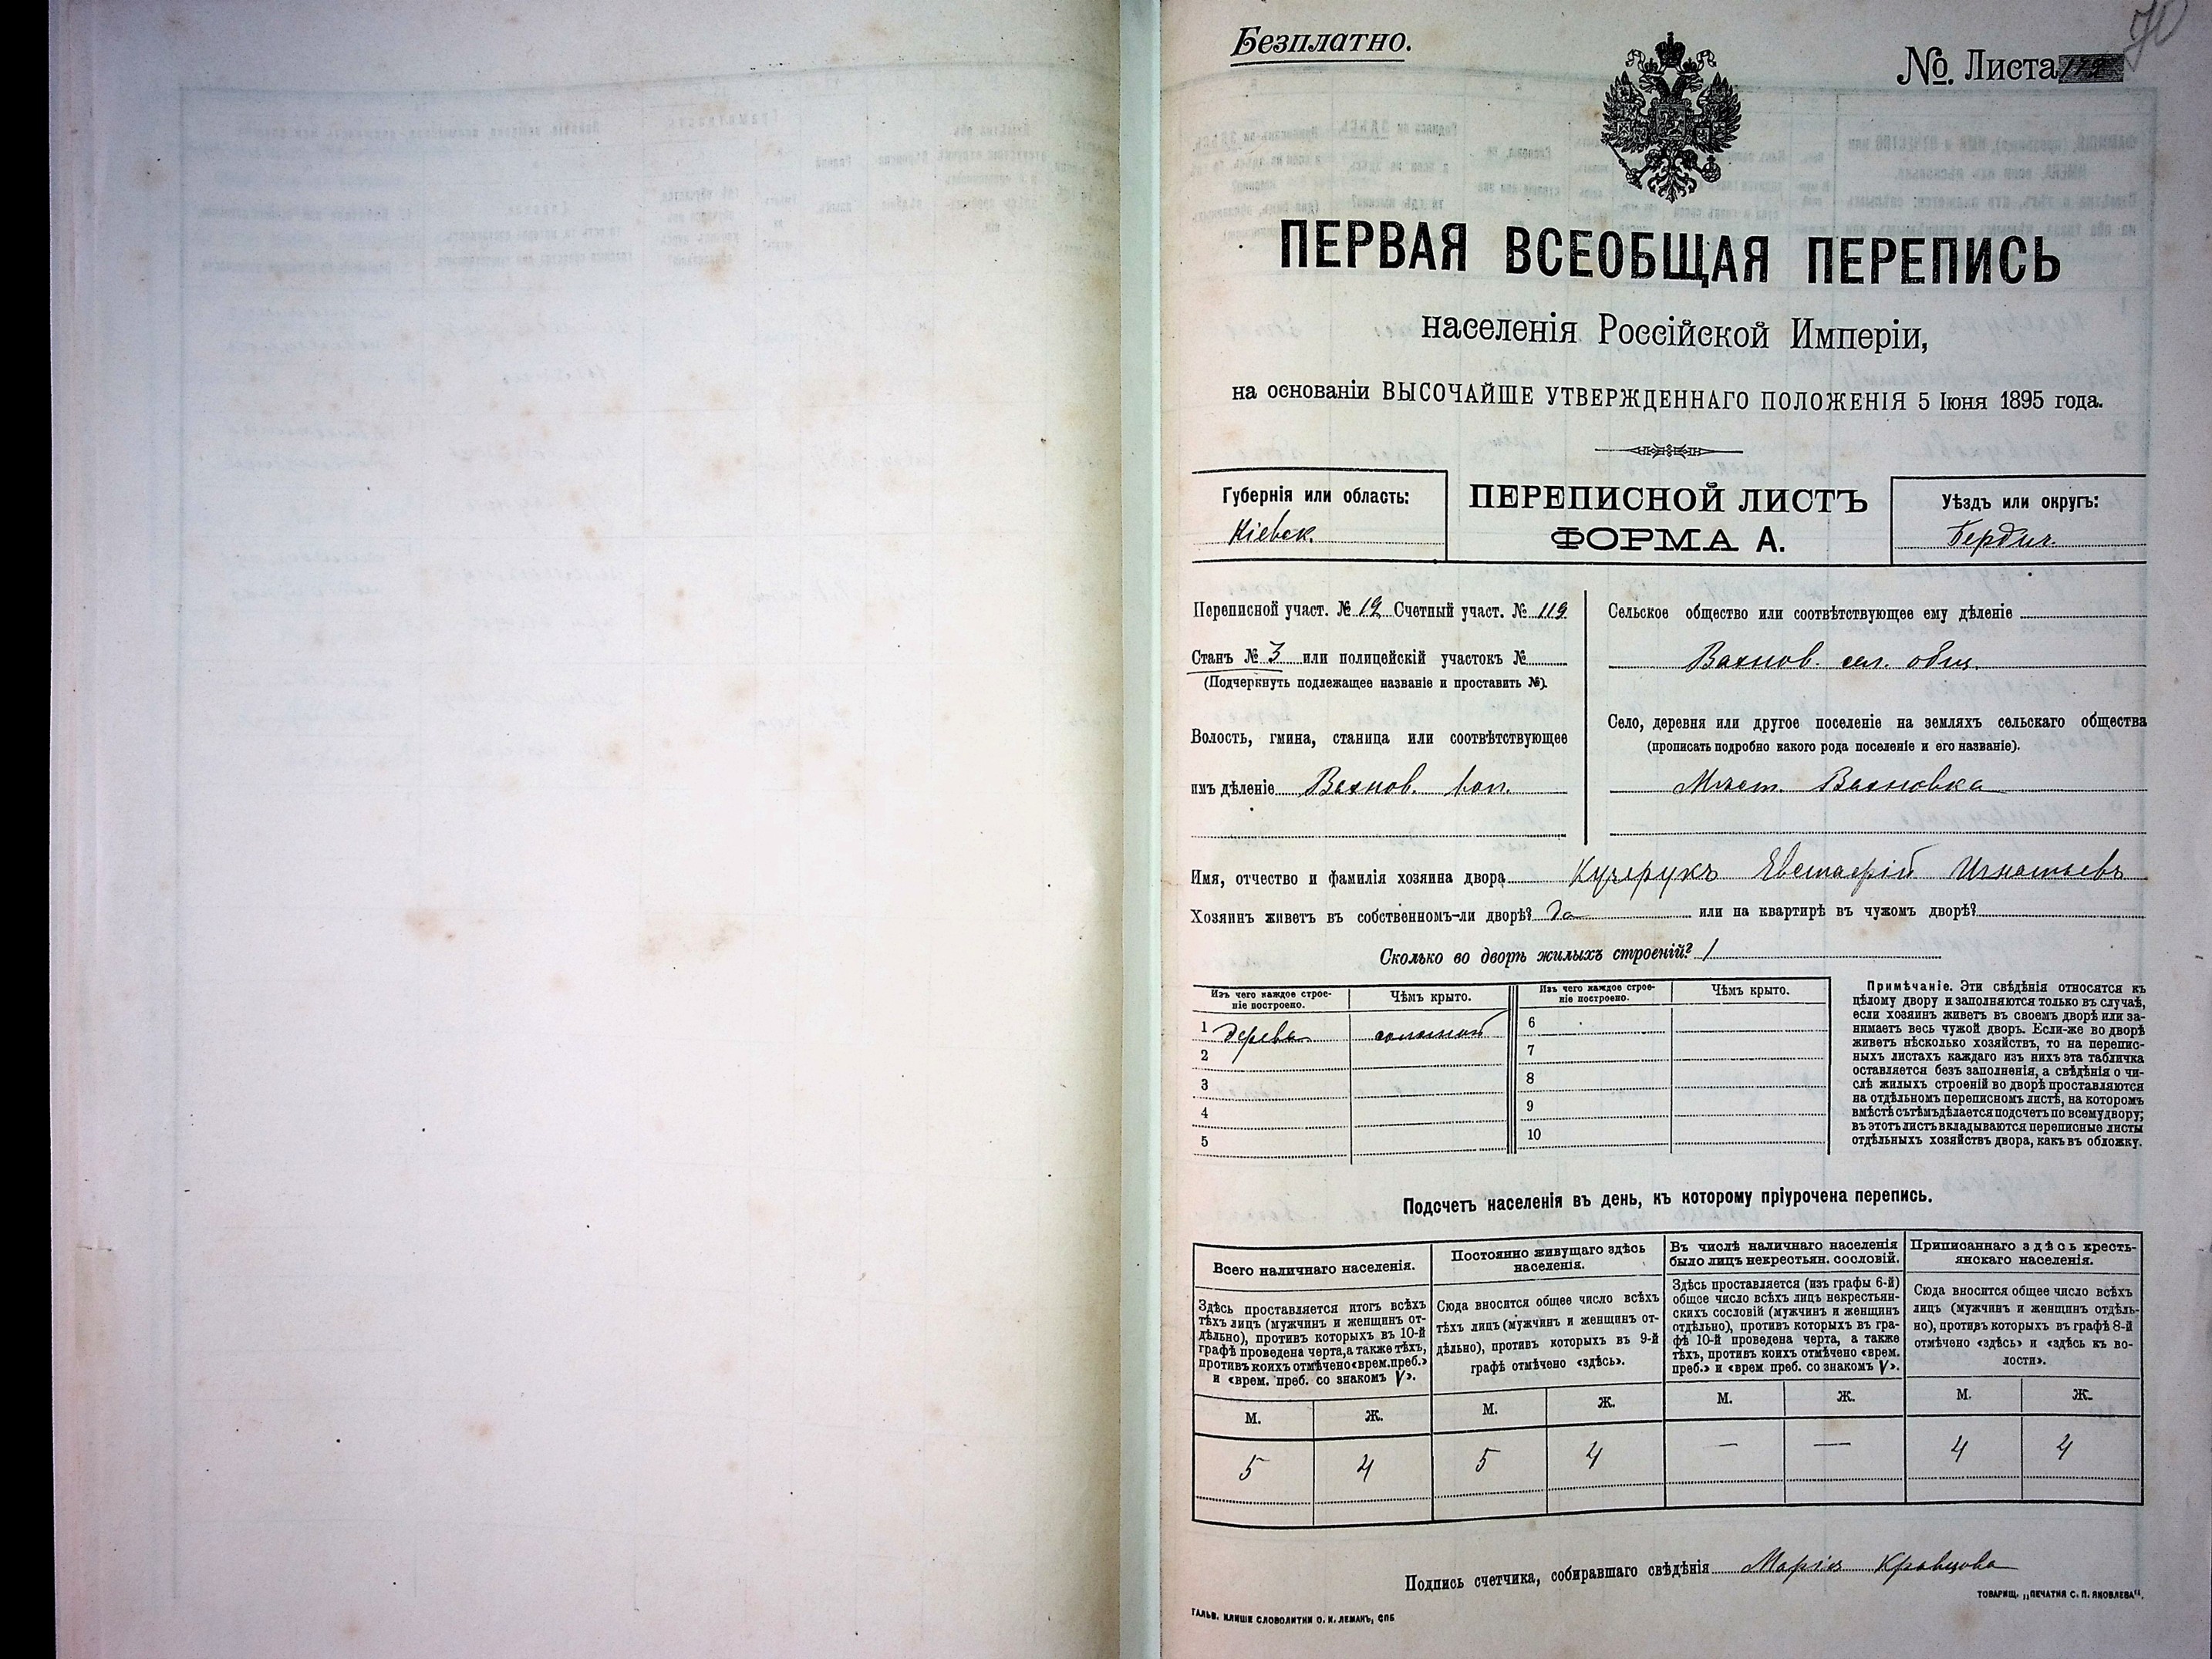 70
Безплатно.
№ Листа
ПЕРВАЯ ВСЕОБЩАЯ ПЕРЕПИСЬ
населенія Россійской Имперіи,
на основаніи ВЫСОЧАЙШЕ УТВЕРЖДЕННАГО ПОЛОЖЕНІЯ 5 Іюня 1895 года.
Губернія или область:
Кіевск.
ПЕРЕПИСНОЙ ЛИСТЪ
ФОРМА А.
Уѣздъ или округъ:
Бердич.
Переписной участ. № 12 Счетный участ. № 119
Станъ № 3 или полицейскій участокъ №
(Подчеркнуть подлежащее названіе и проставить №).
Волость, гмина, станица или соотвѣтствующее
имъ дѣленіе Вахнов. вол.
Сельское общество или соотвѣтствующее ему дѣленіе
Вахнов. сел. общ.
Село, деревня или другое поселеніе на земляхъ сельскаго общества
(прописать подробно какого рода поселеніе и его названіе).
Мѣст. Вахновка
Имя, отчество и фамилія хозяина двора Кучерукъ Евстафій Игнатьевъ
Хозяинъ живетъ въ собственномъ-ли дворѣ? Да или на квартирѣ въ чужомъ дворѣ?
Сколько во дворѣ жилыхъ строеній? 1
Изъ чего каждое строе-
ніе построено.
Чѣмъ крыто.
Изъ чего каждое строе-
ніе построено.
Чѣмъ крыто.
1 дерева соломой
2
3
4
5
6
7
8
9
10
Примѣчаніе. Эти свѣдѣнія относятся къ
цѣлому двору и заполняются только въ случаѣ,
если хозяинъ живетъ въ своемъ дворѣ или за-
нимаетъ весь чужой дворъ. Если-же во дворѣ
живетъ нѣсколько хозяйствъ, то на перепис-
ныхъ листахъ каждаго изъ нихъ эта табличка
оставляется безъ заполненія, а свѣдѣнія о чи-
слѣ жилыхъ строеній во дворѣ проставляются
на отдѣльномъ переписномъ листѣ, на которомъ
вмѣстѣ съ тѣмъ дѣлается подсчетъ по всему двору;
въ этотъ листъ вкладываются переписные листы
отдѣльныхъ хозяйствъ двора, какъ въ обложку.
Подсчетъ населенія въ день, къ которому пріурочена перепись.
Всего наличнаго населенія.
Здѣсь проставляется итогъ всѣхъ
тѣхъ лицъ (мужчинъ и женщинъ от-
дѣльно), противъ которыхъ въ 10-й
графѣ проведена черта, а также тѣхъ,
противъ коихъ отмѣчено «врем. преб.»
и «врем. преб. со знакомъ V».
Постоянно живущаго здѣсь
населенія.
Сюда вносится общее число всѣхъ
тѣхъ лицъ (мужчинъ и женщинъ от-
дѣльно), противъ которыхъ въ 9-й
графѣ отмѣчено «здѣсь».
Въ числѣ наличнаго населенія
было лицъ некрестьян. сословій.
Здѣсь проставляется (изъ графы 6-й)
общее число всѣхъ лицъ некрестьян-
скихъ сословій (мужчинъ и женщинъ
отдѣльно), противъ которыхъ въ гра-
фѣ 10-й проведена черта, а также
тѣхъ, противъ коихъ отмѣчено «врем.
преб.» и «врем преб. со знакомъ V».
Приписаннаго здѣсь кресть-
янскаго населенія.
Сюда вносится общее число всѣхъ
лицъ (мужчинъ и женщинъ отдѣль-
но), противъ которыхъ въ графѣ 8-й
отмѣчено «здѣсь» и «здѣсь къ во-
лости».
М. Ж. М. Ж. М. Ж. М. Ж.
5 4 5 4 — — 4 4
Подпись счетчика, собиравшаго свѣдѣнія Марія Кравцова
ГАЛЬВ. КЛИШЕ СЛОВОЛИТНИ О. И. ЛЕМАНЪ, СПБ
ТОВАРИЩ. „ПЕЧАТНЯ С. П. ЯКОВЛЕВА“.